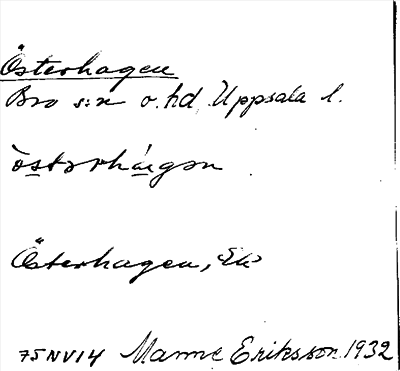 Österhagen
Bro s:n o. hd Uppsala l.
östərhàgən
Österhagen, Ek
75NV14 Manne Eriksson 1932